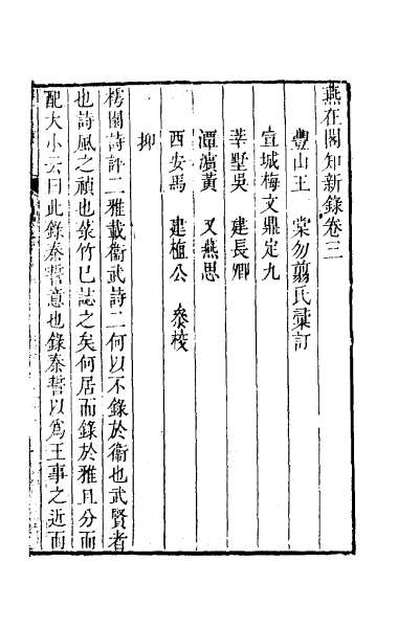 燕在閣知新錄卷三
豐山王　棠勿翦氏彙訂
宣城梅文鼎定九
莘墅吳　建長卿
潭濱黃　又燕思
西安馬　建植公　叅校
抑
楞園詩評二雅載衞武詩二何以不錄於衞也武賢者
也詩風之禎也菉竹巳誌之矣何居而錄於雅且分而
配大小云曰此錄秦誓意也錄秦誓以爲王事之近而